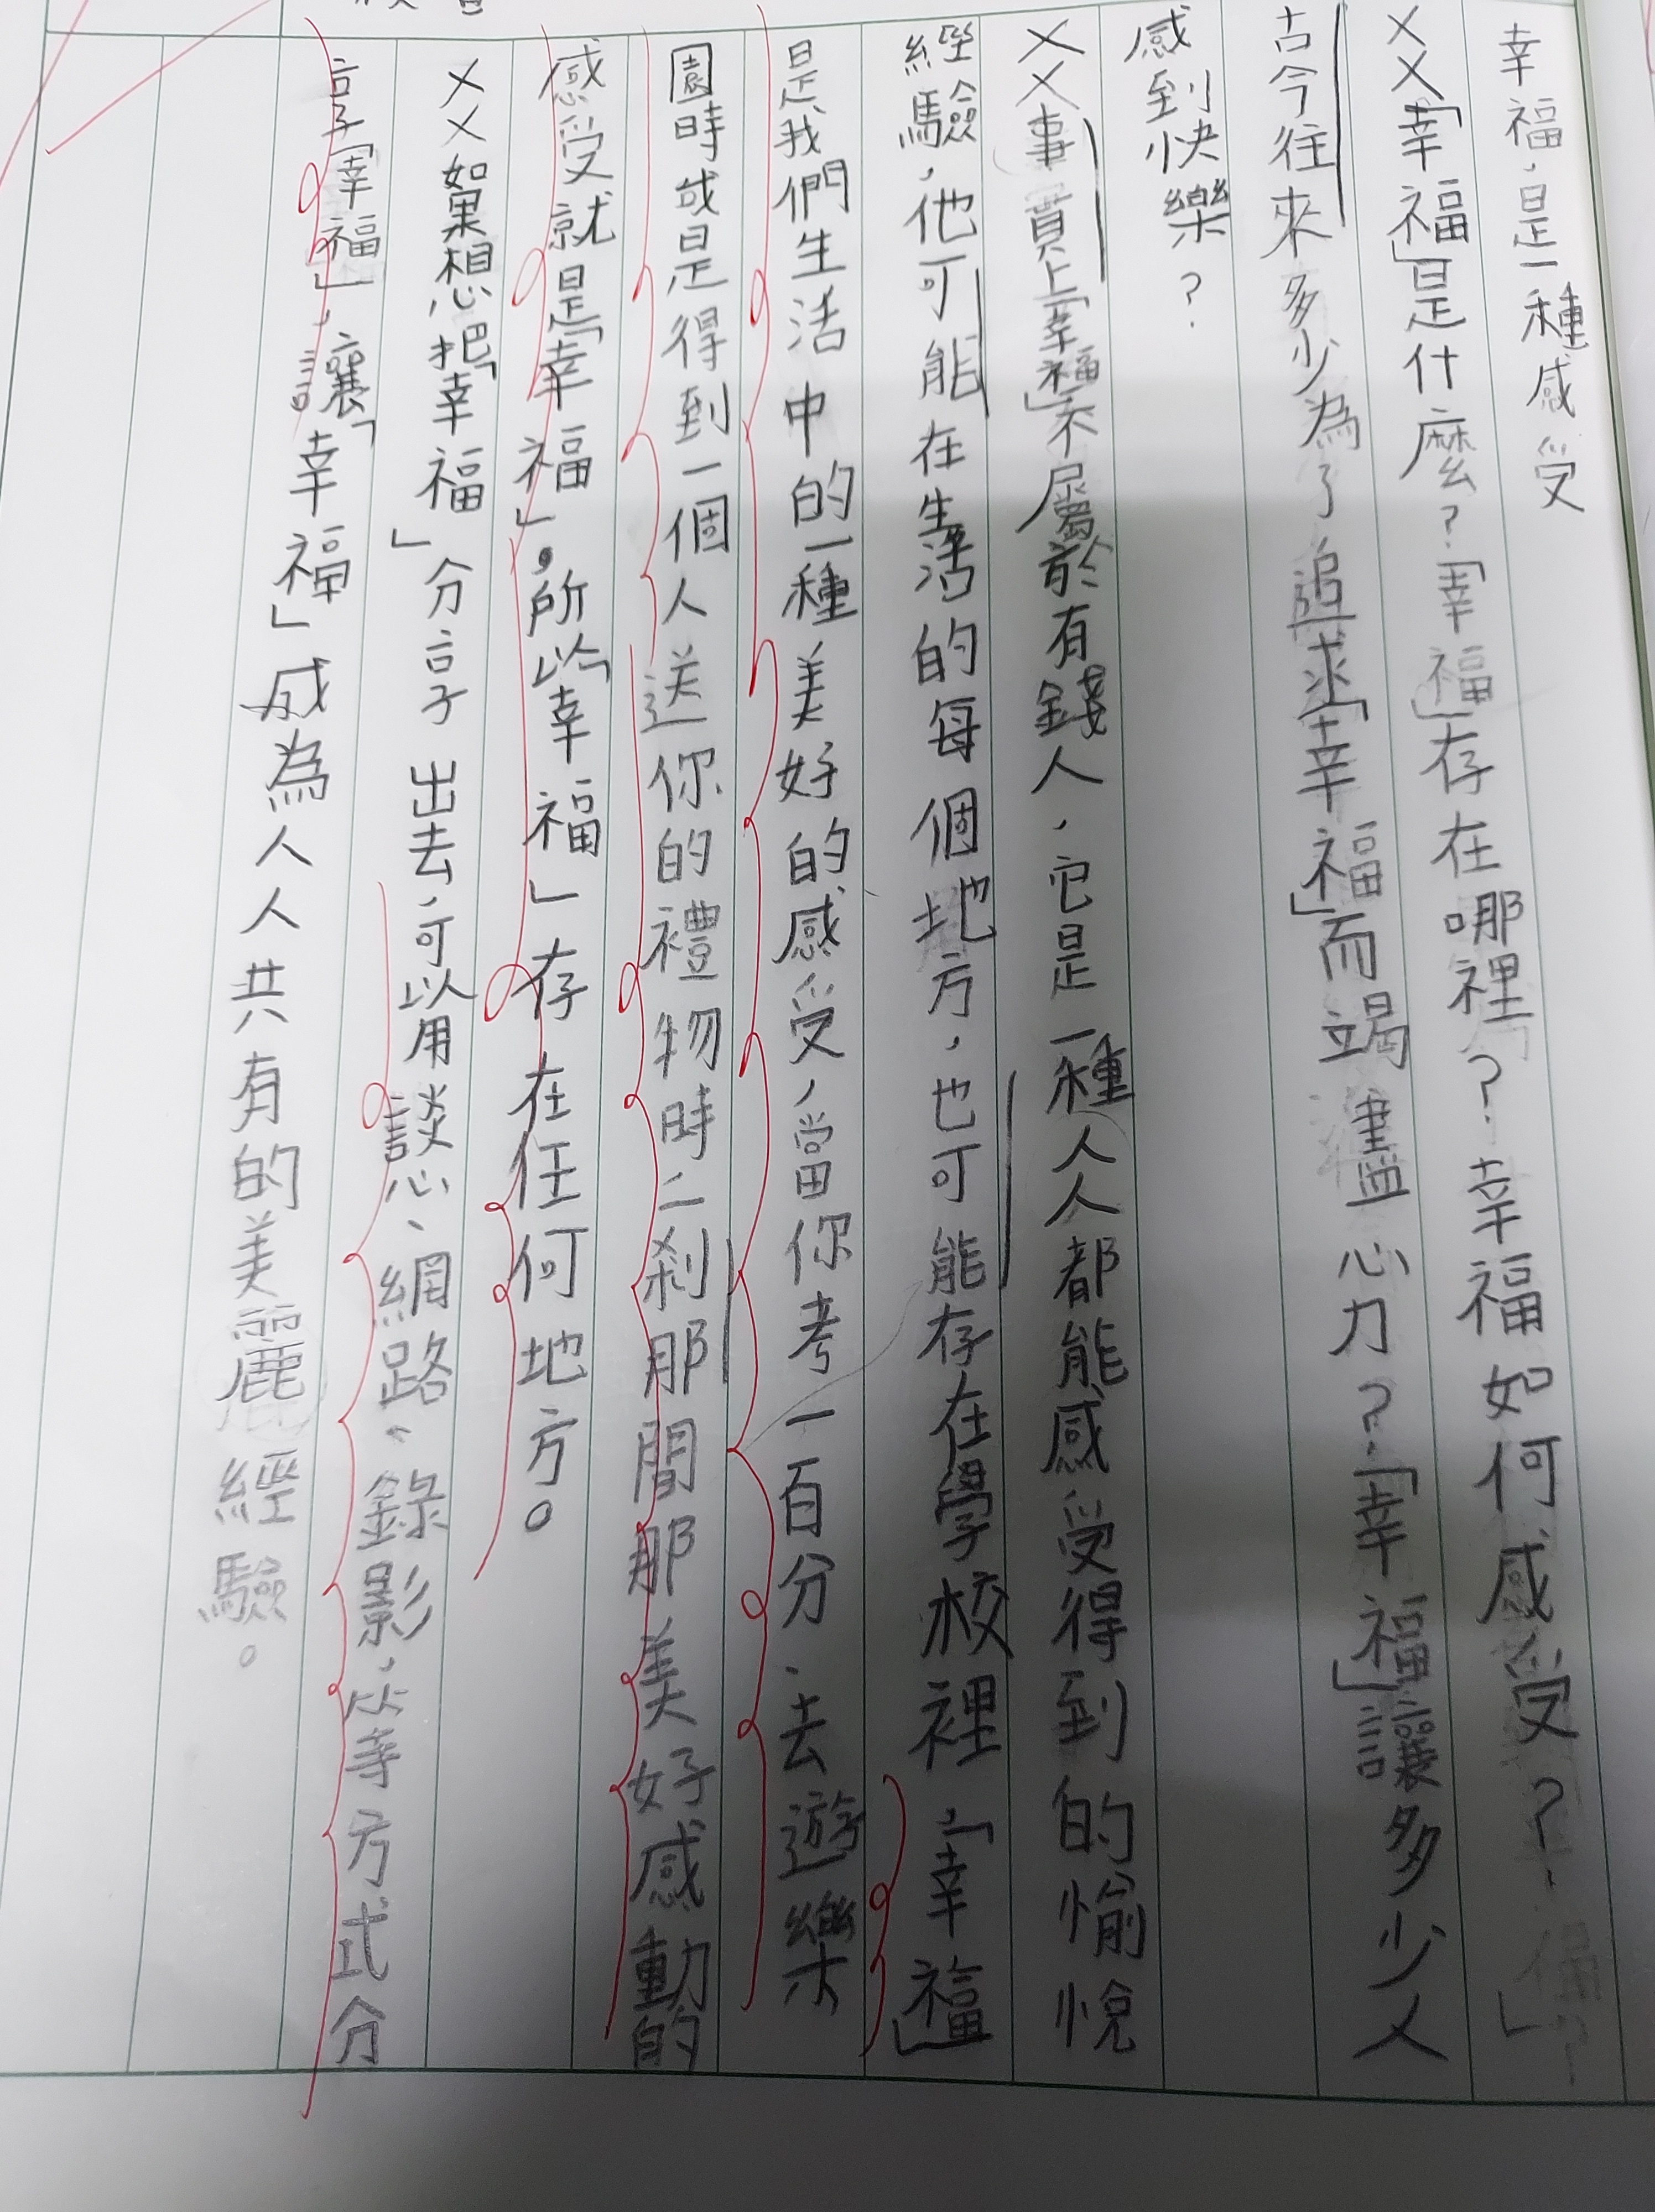 幸福，是一種感受
××「幸福」是什麼？「幸福」存在哪裡？幸福如何感受？
古今往來多少為了追求「幸福」而竭盡心力？「幸福」讓多少人
感到快樂？
××事實上「幸福」不屬於有錢人，它是一種人人都能感受得到的愉悅
經驗，他可能在生活的每個地方，也可能存在學校裡，「幸福」
是我們生活中的一種美好的感受，當你考一百分、去遊樂
園時或是得到一個人送你的禮物時，一剎那間那美好感動的
感受就是「幸福」，所以「幸福」存在任何地方。
××如果想把「幸福」分享出去，可以用談心、網路、錄影，等方式分
享「幸福」，讓「幸福」成為人人共有的美麗經驗。